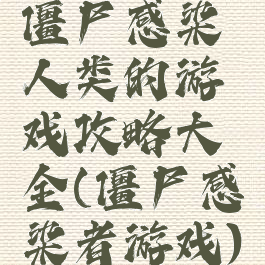 僵尸感染
人类的游
戏攻略大
全(僵尸感
染者游戏)